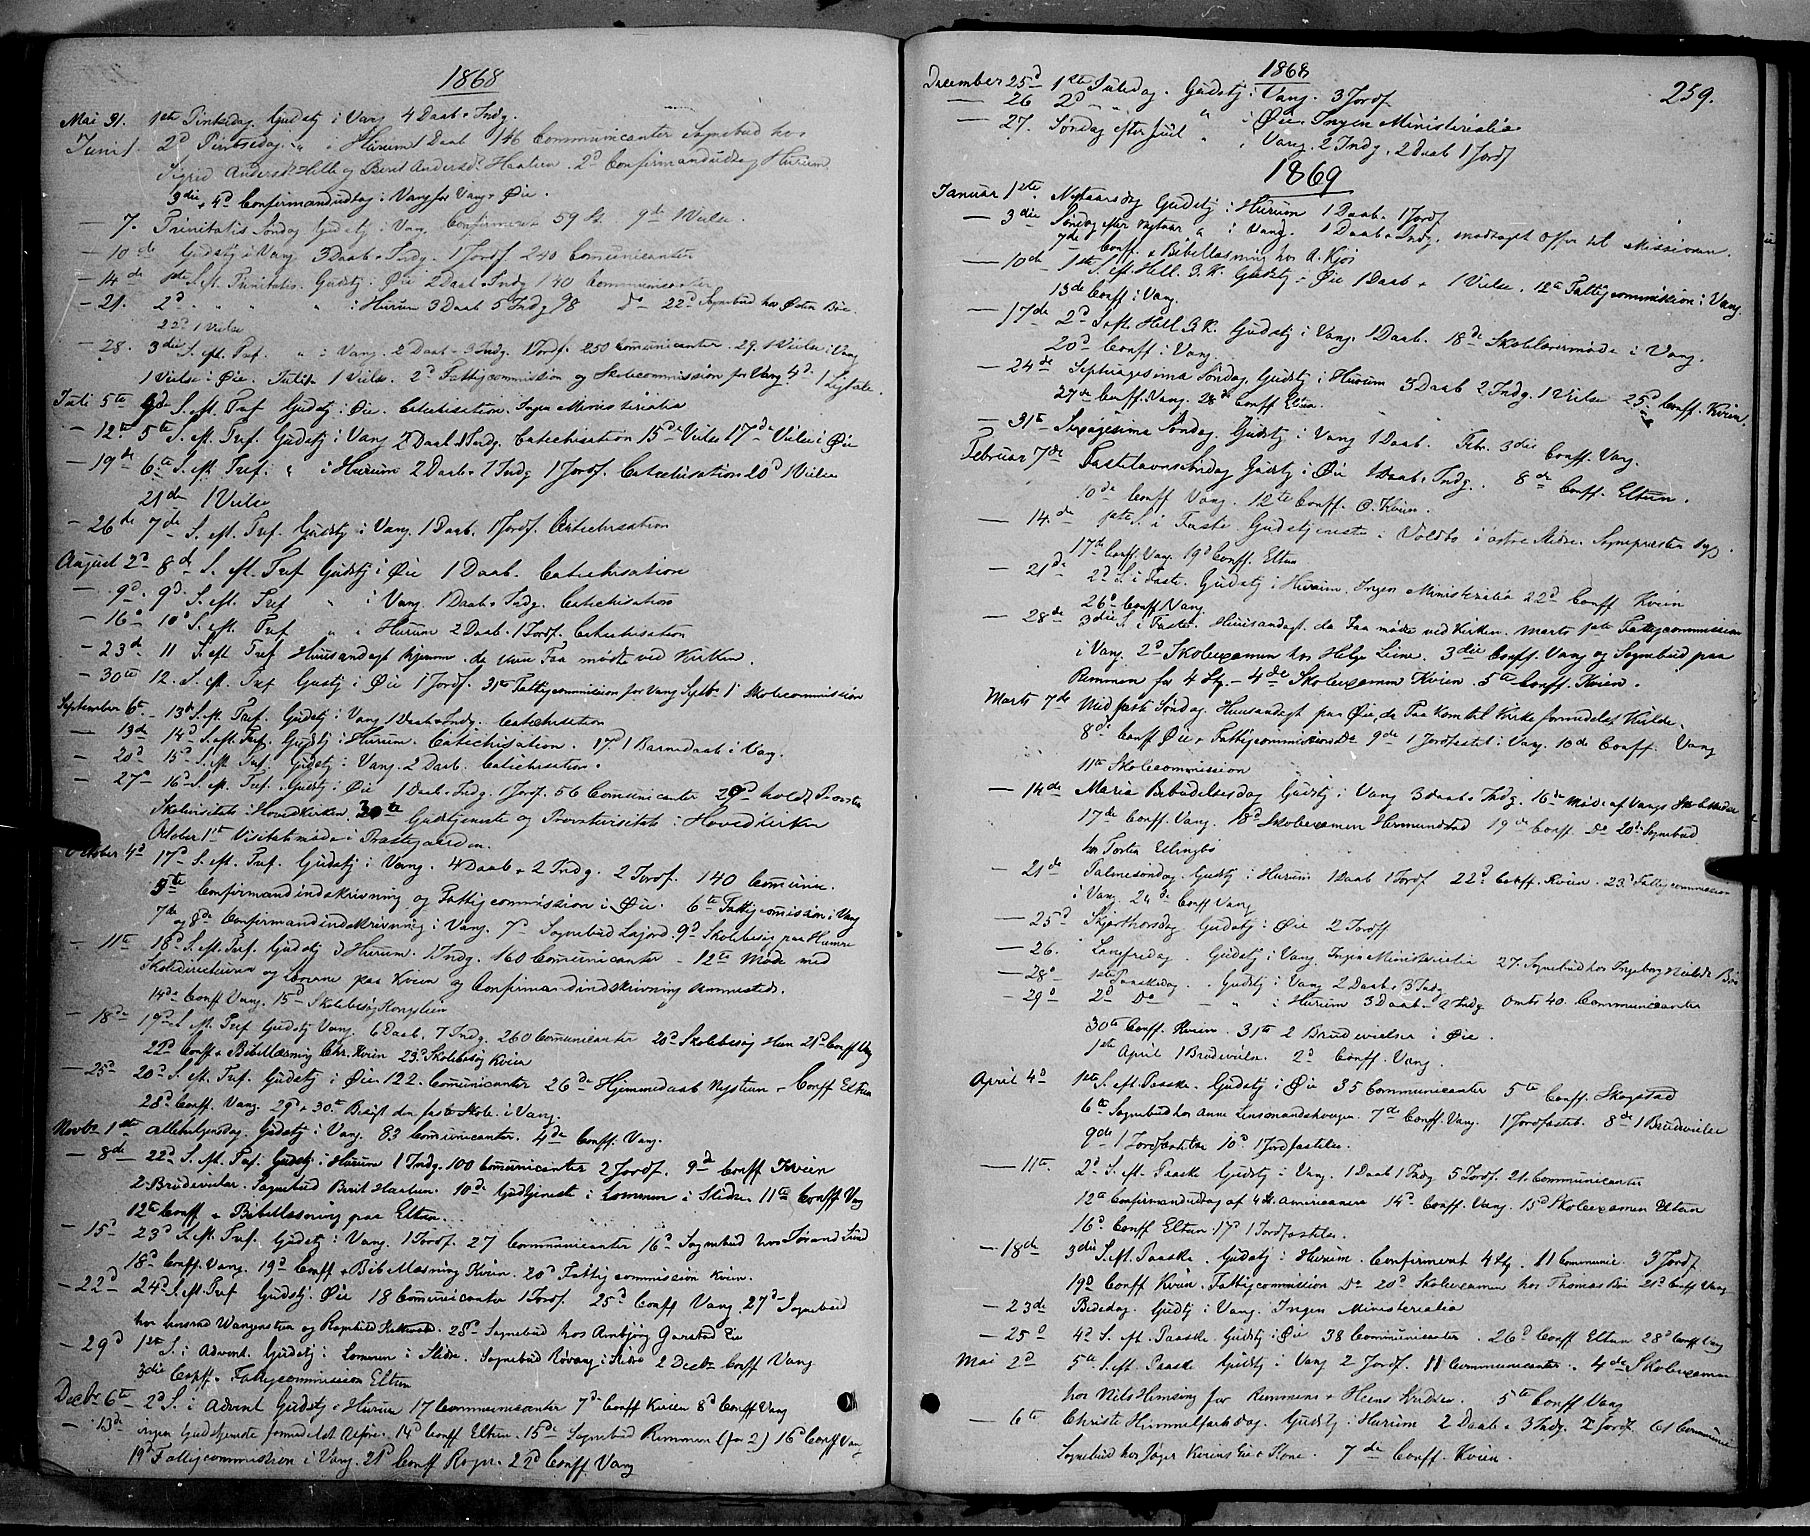 1868
Mai 31. 1ste Pintsedag Gudstj i Vang 4 Daab + Indg.
Juni 1. 2d Pintsedag " " Hurum 1 Daab 146 Communicanter Sognebud hos
Sigrid Andersdt Helle og Berit Andersdt Haalien. 2d Confirmandudtag Hurum
3die + 4d Confirmandudtag i Vang for Vang + Øie.
— 7. Trinitatis Søndag Gudstj i Vang. Confirmeret 59 St. 9de 1 Vielse.
— 10de Gudstj i Vang 3 Daab + Indg. 1 Jordf. 240 Comunicanter
— 14de 1ste S. eft. Trinitatis. Gudstj i Øie 2 Daab + Indg 140 Communicanter
— 21. 2d " " " " i Hurum 3 Daab 5 Indg 98 do 22d Sognebud hos Østen Bøe.
22d 1 Vielse
— 28. 3die S. eft. Tref. " i Vang. 2 Daab + 3 Indg. 1 Jordf. 250 Comunicanter. 29. 1 Vielse i Vang
1 Vielse i Øie. Juli 1ste 1 Vielse. 2d Fattigcommission og Skolecommission for Vang 4de 1 Liglale
Juli 5te 4de S. eft. Tref Gudstj i Øie. Catechisation. Ingen Ministerialia
— 12te 5te S. eft. Tref. Gudstj i Vang 2 Daab 1 Indg. Catechisation 15de Vielse 17de Vielse i Øie
— 19de 6te S. eft. Tref. " i Hurum 2 Daab + 1 Indg 1 Jordf. Catechisation 20d 1 Vielse
21de 1 Vielse
— 26de 7de S. eft. Tref. Gudstj i Vang. 1 Daab. 1 Jordf. Catechisation
August 2d 8de S. eft. Tref Gudstj i Øie 1 Daab. Catechisation
— 9d. 9d S. eft. Tref " i Vang. 1 Daab + Indg. Catechisation
— 16d 10d S. eft. Tref " i Hurum 2 Daab. 1 Jordf. Catechisation
— 23de 11 S. eft Tref Huusandagt hjemme, da kun Faa mødte ved Kirken.
— 30te 12. S. eft. Tref Gudstj i Øie 1 Jordf. 31te Fattigcommission for Vang Septb. 1 Skolecommission
September 6te — 13de S. eft. Tref. Gudstj i Vang 1 Daab + Indg. Catechisation
— 13de 14d S. eft. Tref. Gudstj i Hurum. Catechisation. 17d 1 Barnedaab i Vang.
— 20d 15d S. eft. Tref. Gudstj i Vang. 2 Daab. Catechisation.
— 27de 16d S. eft. Tref. Gudstj i Øie 1 Daab + Indg. 1 Jordf. 56 Comunicanter 29d holdt Provsten
Skolevisitats i Hovedkirken. 30te Gudstjeneste og Provstevisitats i Hovedkirken
October 1ste Visitatsmøde i Præstegaarden.
October 4d 17d S. eft. Tref. Gudstj i Vang. 4 Daab + 2 Indg. 2 Jordf. 140 Comunic.
5te Confirmandindskrivning og Fattigcommission i Øie. 6te Fattigcomission i Vang
7de og 8de Confirmandindskrivning i Vang. 7d Sognebud Lajord. 9d Skolebesøg paa Hamre
— 11te 18d S. eft. Tref. Gudstj i Hurum. 1 Indg. 160 Comunicanter — 12te Møde med
Skoledirecteuren og Lærerne paa Kvien og Confirmandindskrivning sammesteds.
14de Conff Vang. 15d Skolebesøg Kongslien
— 18de 19d S. eft. Tref Gudstj Vang. 6 Daab, 7 Indg. 260 Comunicanter 20d Skolebesøg Hen 21d Conff Vang
22d Conff + Bibellæsning Chr. Kvien 23d Skolebesøg Kvien
— 25d 20d S. eft. Tref. Gudstj i Øie. 122. Comunicanter 26de Hjemmedaab Nystuen + Conff Eltun
28d Conff. Vang. 29d + 30te Besøgt den faste Skole i Vang.
Novbr 1ste Allehelgensdag. Gudstj i Vang. 83 Comunicanter. 4de Conff. Vang.
— 8de 22d S. eft. Tref. Gudstj i Hurum 1 Indg. 100 Comunicanter 2 Jordf. 9d Conff Kvien
2 Brudevielser. Sognebud Berit Haalien. 10d Gudstjeneste i Lommen i Slidre. 11te Conff Vang
12te Conff + Bibellæsning paa Eltun.
— 15d 23d S. eft. Tref. Gudstj i Vang. 1 Jordf. 27 Communicanter 16d Sognebud hos Sørand Sund
18d Conff. Vang. 19d Conff + Bibellæsning Kvien. 20d Fattigcommission Kvien.
— 22d 24d S. eft. Tref Gudstj. Øie 18 Comunicanter 1 Jordf. 25d Conff Vang. 27d Sognebud
hos Wangensteen og Ragnhild 28d Sognebud hos Ambjørg Garstad Eie
— 29d 1ste S. i Advent. Gudstj i Lommen i Slidre. Sognebud Røvang i Slidre 2 Decbr Conff Vang
3die Conff. Fattigcommission Eltun
Decbr 6te 2d S. i Advent Gudstj i Hurum 17 Communicanter 7d Conff Kvien 8d Conff Vang
— 13de ingen Gudstjeneste formedelst Uføre. 14d Conff Eltun. 15de Sognebud Remmen (for 2) 16d Conff Vang
19d Fattigcommission i Vang. 21d Conff Rogn. 22d Conff Vang
1868
259.
December 25d 1ste Juledag. Gudstj i Vang. 3 Jordf
— 26 2d " " i Øie. Ingen Ministerialia
— 27. Søndag efter Juul " i Vang. 2 Indg. 2 Daab 1 Jordf
1869
Januar 1ste. Nytaarsdag Gudstj i Hurum 1 Daab. 1 Jordf
— 3die Søndag efter Nytaar " i Vang. 1 Daab + Indg. modtaget Offer til Missionen.
7de Conff. + Bibellæsning hos A. Kjos
— 10de 1ste S. eft. Hell. 3 K. Gudstj i Øie 1 Daab + 1 Vielse. 12te Fattigcommission i Vang
13de Conff i Vang.
— 17de 2d S. eft. Hell. 3 K. Gudstj i Vang. 1 Daab. 18de Skolelærermøde i Vang.
20d Conff i Vang.
— 24de Septuagesima Søndag Gudstj i Hurum 3 Daab 2 Indg. 1 Vielse 25d Conff. Kvien.
27de Conff. Vang. 28de Conff Eltun.
— 31te Sexagesima Søndag. Gudstj i Vang 1 Daab. Febr. 3die Conff. Vang.
Februar 7de Fastelavnssøndag Gudstj i Øie 1 Daab + Indg. 8de Conff. Eltun.
10de Conff Vang. 12te Conff. O. Kvien.
— 14de 1ste S. i Faste Gudstjeneste i Voldbo i østre Slidre. Sognepræsten syg.
17de Conff. Vang. 19d Conff. Eltun
— 21de 2d S. i Faste. Gudstj i Hurum. Ingen Ministerialia 22d Conff Kvien
26d Conff Vang.
— 28de 3die S. i Faste. Huusandagt. da Faa mødte ved Kirken. Marts 1ste Fattigcommission
i Vang. 2d Skoleexamen hos Helge Liene. 3die Conff. Vang og Sognebud paa
Remmen for 4 St. — 4de Skoleexamen Kvien. 5te Conff. Kvien.
Marts 7de Midfaste Søndag. Huusandagt paa Øie, da Faa kom til Kirke formedelst Kulde.
8de Conff Øie + Fattigcommission Do 9de 1 Jordfæstet i Vang. 10de Conff. Vang
11te Skolecommission
— 14de Maria Bebudelsesdag Gudstj i Vang 3 Daab + Indg. 16de Møde af Vangs
17de Conff. Vang. 18d Skoleexamen Hermundstad 19de Conff. Do 20de Sognebud
hos Torstein Ellingbø
— 21de Palmesøndag. Gudstj i Hurum 1 Daab 1 Jordf 22d Conff. Kvien. 23d Fattigcommission
i Vang. 24de Conff Vang
— 25d Skjærthorsdag Gudstj i Øie 2 Jordff
— 26. Langfredag. Gudstj i Vang. Ingen Ministerialia 27. Sognebud hos Ingeborg Bøe
— 28d 1ste Paaskedag. Gudstj i Vang 2 Daab + 3 Indg
— 29d 2d Do — " — " i Hurum 3 Daab + 2 Indg omtr 40. Communicanter
30te Conff. Kvien. 31te 2 Brudevielser i Øie.
1ste April 1 Brudevielse. 2d Conff. Vang.
April 4d 1ste S. eft. Paaske. Gudstj i Øie 35 Communicanter 5te Conff. Skogstad
6te Sognebud hos Anne Lensmandshaugen. 7de Conff. Vang. 1 Jordfæstet. 8de 1 Brudevielse
9de 1 Jordfæstelse 10d 1 Jordfæstelse.
— 11te 2d S. eft. Paaske Gudstj i Vang. 1 Daab 1 Indg 5 Jordf. 21. Communicanter
12te Confirmandudtag af 4 St. Americanere 14d Conff. Vang. 15d Skoleexamen Eltun
16d Conff Eltun 17d 1 Jordfæstelse.
— 18de 3die S. eft. Paaske. Gudstj i Hurum. Confirmeret 4 St. 81 Communic. 3 Jordf
19d Conff Kvien. Fattigcommission Do 20d Skoleexamen hos Thomas Bøe 21d Conff Vang
— 23de Bededag. Gudstj i Vang. Ingen Ministerialia
— 25d 4d S. eft. Paaske. Gudstj i Øie 38 Communicanter. 26d Conff. Eltun 28d Conff Vang
Mai 2d 5te S. eft. Paaske Gudstj i Vang 2 Jordf. 11 Communicanter. 4de Skoleexamen
hos Nils Hemsing for Remmens + Heens Kredse. 5te Conff Vang
— 6te Christi Himmelfartsdag. Gudstj i Hurum 2 Daab + 3 Indg. 2 Jordf Communic
Sognebud hos Jæger Kviens Eie + Kone. 7de Conff. Kvien.